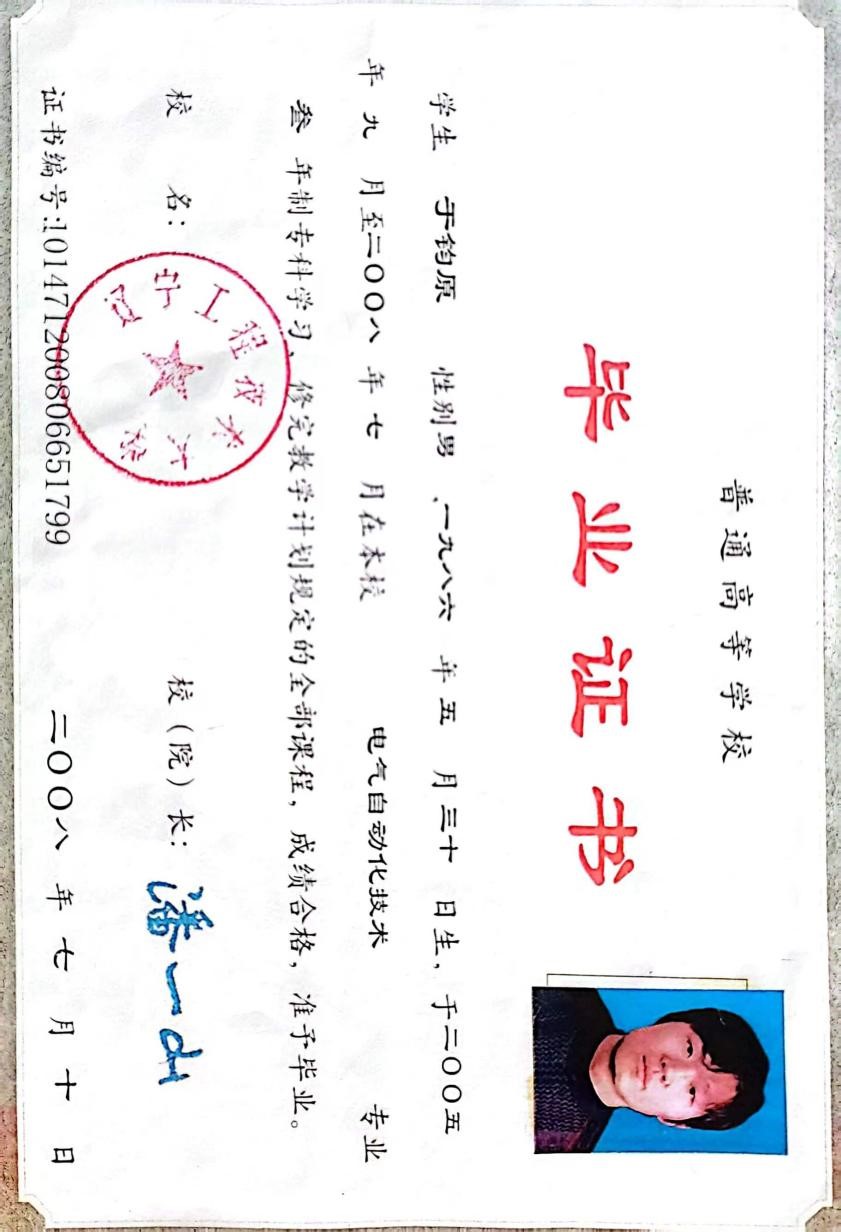 普通高等学校
毕业证书
学生 于钧原 性别男 、一九八六 年五 月三十 日生，于二〇〇五
年 九 月至二〇〇八 年 七 月在本校 电气自动化技术 专业
叁 年制专科学习，修完教学计划规定的全部课程，成绩合格，准予毕业。
校 名： 校（院）长：潘一山
辽宁工程技术大学
证书编号:101471200806651799 二〇〇八 年 七 月 十 日